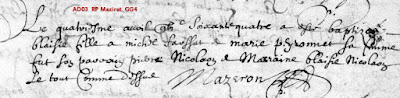 AD03 RP Mazirat GG4
Le quatriesme avril 1664 soixante quatre a esté baptizée
blaisie fille a michel fausset de marie peyronnet sa femme
fut son parrain pierre Nicolaon & Marraine blaisie Nicolaon
le tout comme dessus Mazeron